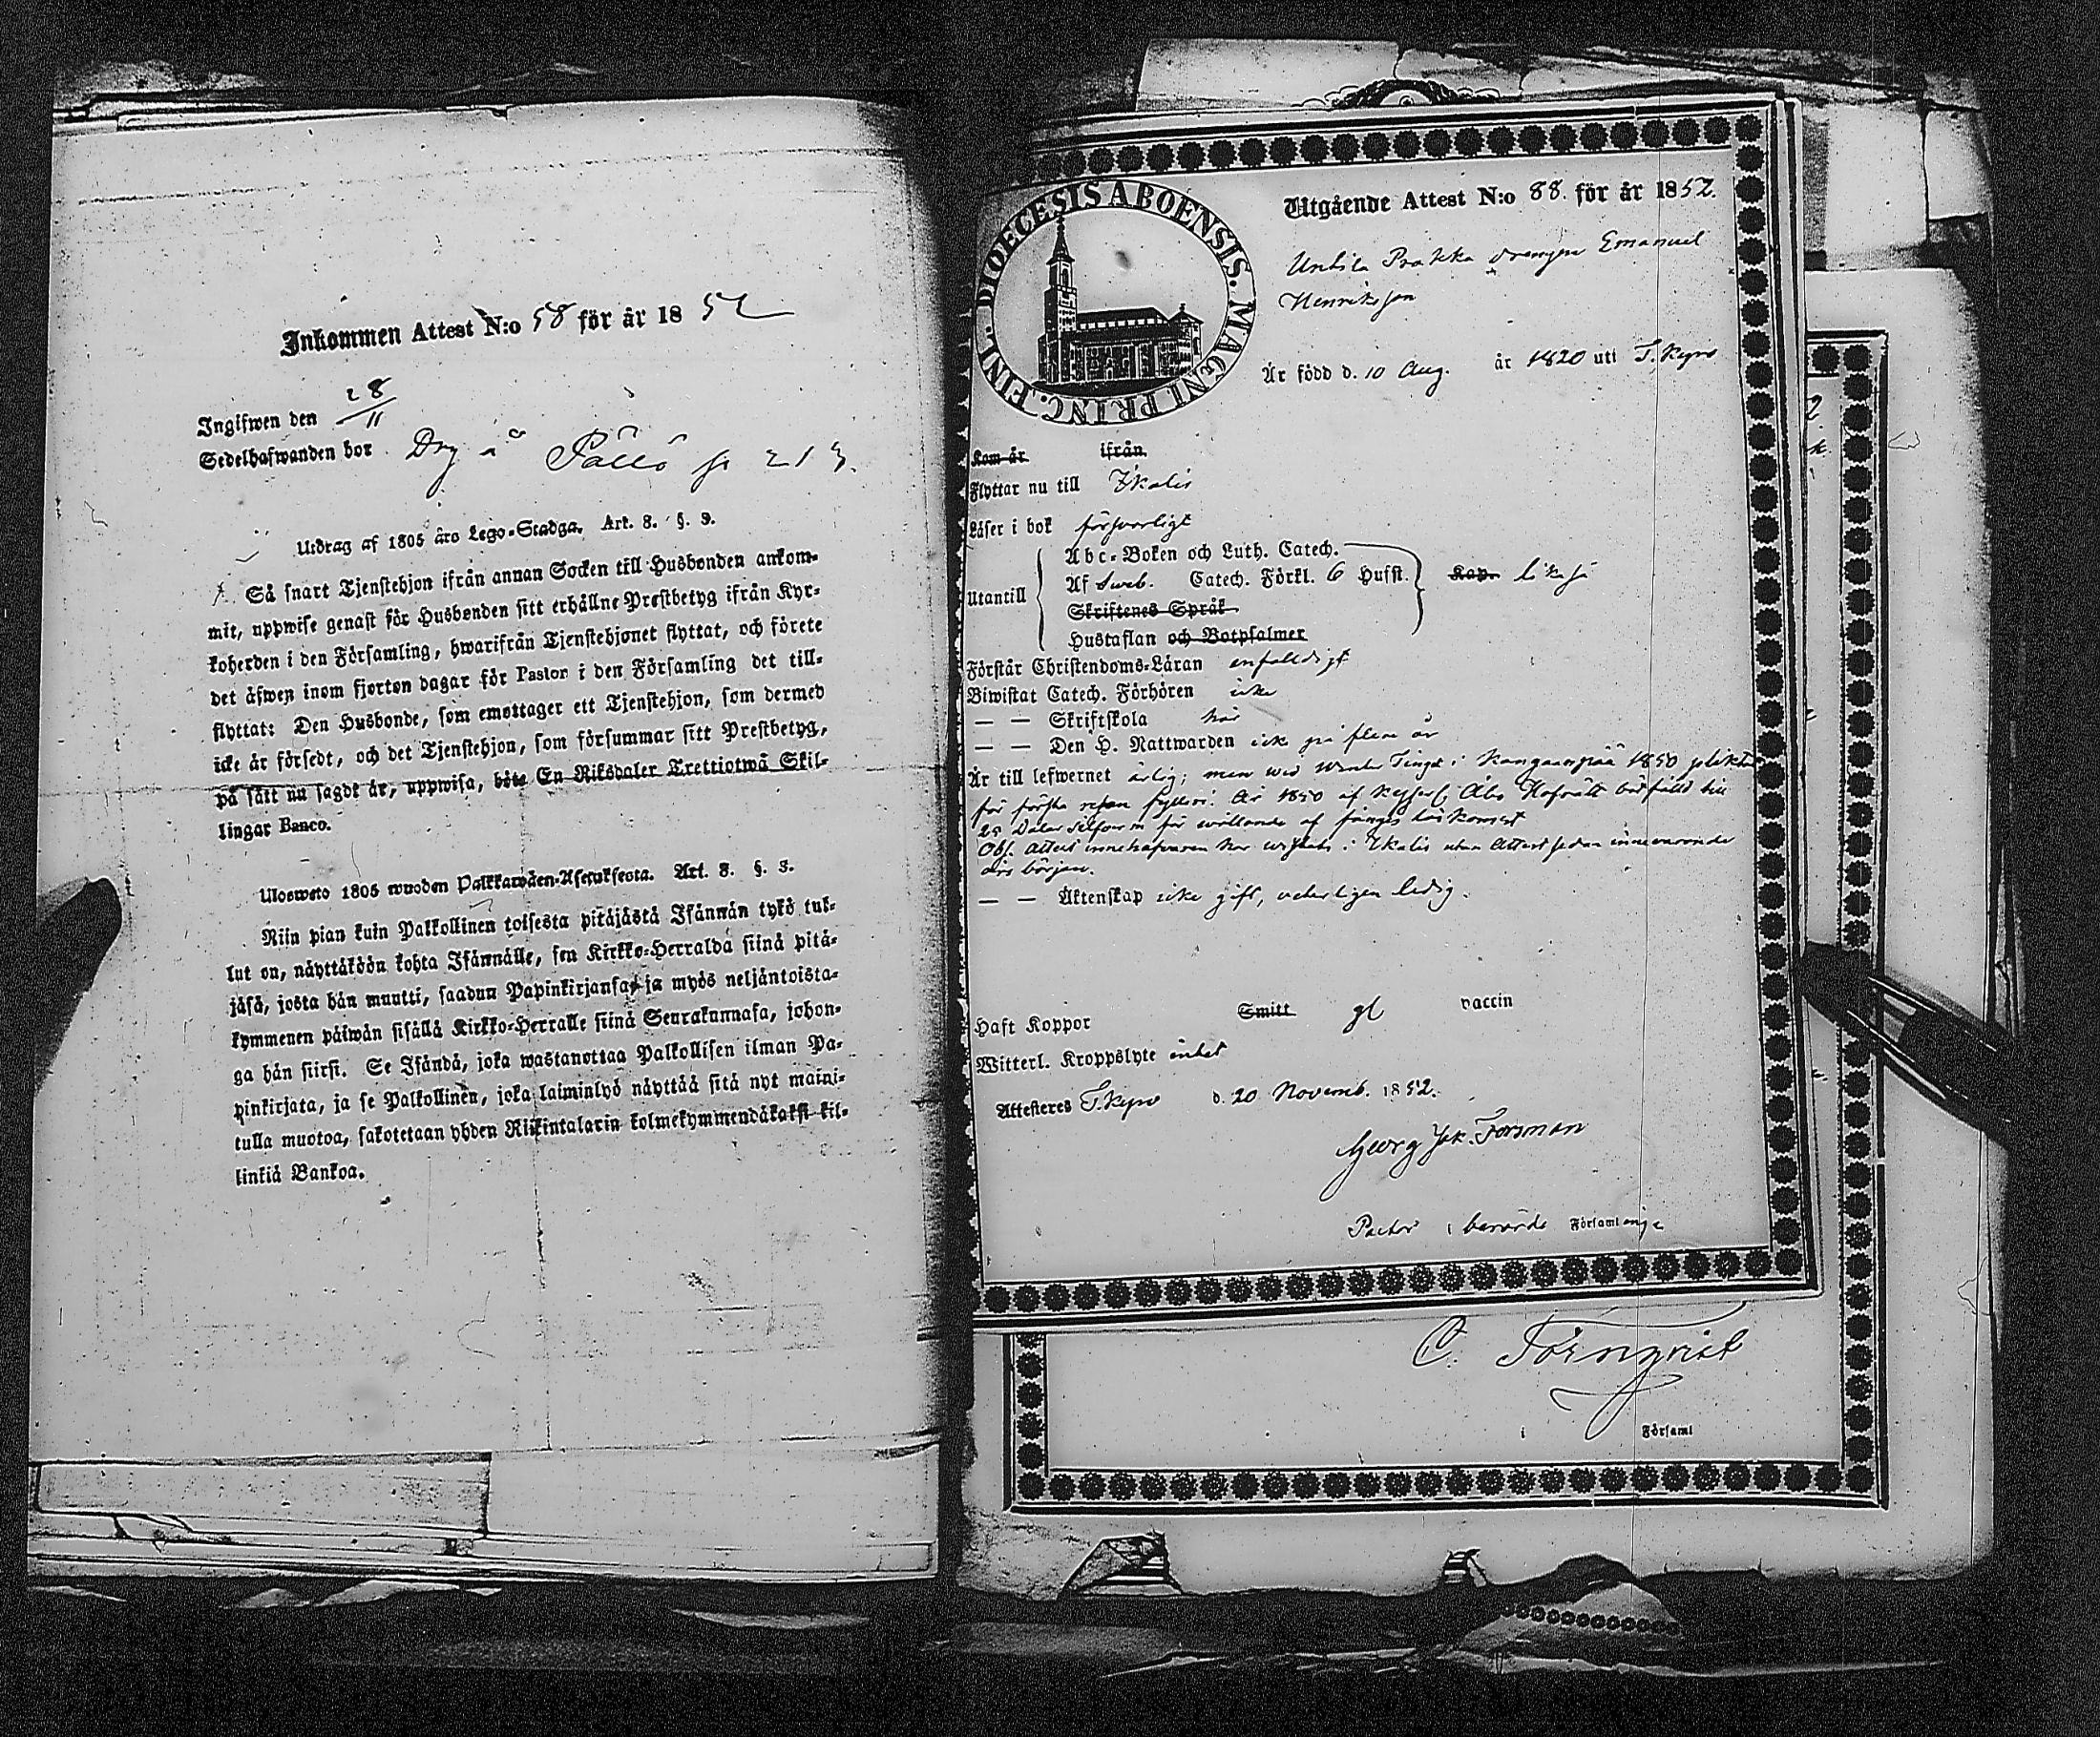 Inkommen Attest N:o 58 för år 1852
Ingifwen den 28/11
Sedelhafwanden bor Drg å
Utdrag af 1805 års Lego-Stadga. Art. 8. §. 3.
Så snart Tjenstehjon ifrån annan Socken till Husbonden ankom-
mit, uppwise genast för Husbonden sitt erhållne Prestbetyg ifrån Kyr-
koherden i den Församling, hwarifrån Tjenstehjonet flyttat, och förete
det äfwen inom fjorton dagar för Pastor i den Församling det till-
flyttat: Den Husbonde, som emottager ett Tjenstehjon, som dermed
icke är försedt, och det Tjenstehjon, som försummar sitt Prestbetyg,
på sätt nu sagdt är, uppwisa, böte En Riksdaler Trettiotwå Skil-
lingar Banco.
Ulosweto 1805 wuoden Palkkawäen-Asetuksesta. Art. 8. §. 3.
Niin pian kuin Palkollinen toisesta pitäjästä Isännän tykö tul-
lut on, näyttäköön kohta Isännälle, sen Kirkko-Herralda siinä pitä-
jäsä, josta hän muutti, saadun Papinkirjansa, ja myös neljäntoista-
kymmenen päiwän sisällä Kirkko-Herralle siinä Seurakunnasa, johon-
ga hän siirsi. Se Isändä, joka wastanottaa Palkollisen ilman Pa-
pinkirjata, ja se Palkollinen, joka laiminlyö näyttää sitä nyt maini-
tulla muotoa, sakotetaan yhden Riikintalarin kolmekymmendäkaksi kil-
linkiä Bankoa.
DIOECESIS ABOENSIS. MAGNI PRINC. FINL.
Utgående Attest N:o 88. för år 1852.
Untila Prakka drengen Emanuel
Henriksson
Är född d. 10 Aug. år 1820 uti T. Kyro
Kom år ifrån
Flyttar nu till Ikalis
Läser i bok försvarligt
Utantill
Abc-Boken och Luth. Catech.
Af Sweb. Catech. Förkl. 6 Hufst. Kap. likaså
Skriftenes Språk
Hustaflan och Botpsalmer
Förstår Christendoms-Läran enfaldigt
Biwistat Catech. Förhören icke
— — Skriftskola här
— — Den H. Nattwarden ick på flera år
Är till lefwernet ärlig; men wid Winter Tinget i Kangaanpää 1850 pliktat
för första resan fylleri. År 1850 af Kejserl. Åbo Hofrätt botfälld till
25 Daler Silfwerm för wållande af fånges bortkomst
Obs. Attest innehafwaren har wistats i Ikalis utan Attest sedan innewarande
års början.
— — Äktenskap icke gift, ledig.
Haft Koppor Smitt gl vaccin
Witterl. Kroppslyte intet
Attesteras T. Kyro d. 20 Novemb. 1852.
Georg Jak. Forsman
Pastor i berörde Församlinge
C. Törnqvist
i Församl